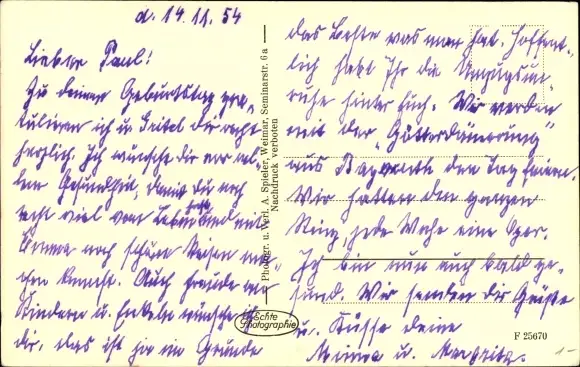 d. 14.11.54
Lieber Paul!
Zu deinem Geburtstag gra-
tulieren ich u. Seitel dir recht
herzlich. Ich wünsche dir vor al-
lem Gesundheit, damit du noch
recht viel vom Leben hast und mit
Emma noch schöne Reisen ma-
chen kannst. Auch Freude an
Kindern u. Enkeln wünsche ich
dir, das ist ja im Grunde
das Beste was man hat. Hoffent-
lich habt Ihr die Umzugsun-
ruhe hinter Euch. Wir werden
mit der "Götterdämmerung"
aus Bayreuth den Tag feiern.
Wir hatten den ganzen
Ring, jede Woche eine Oper.
Ich bin nun auch bald ge-
sund. Wir senden dir Grüße
u. Küsse deine
Minna u. Margarita.
Photogr. u. Verl. A. Spieler, Weimar, Seminarstr. 6a
Nachdruck verboten
Echte
Photographie
F 25670
1-